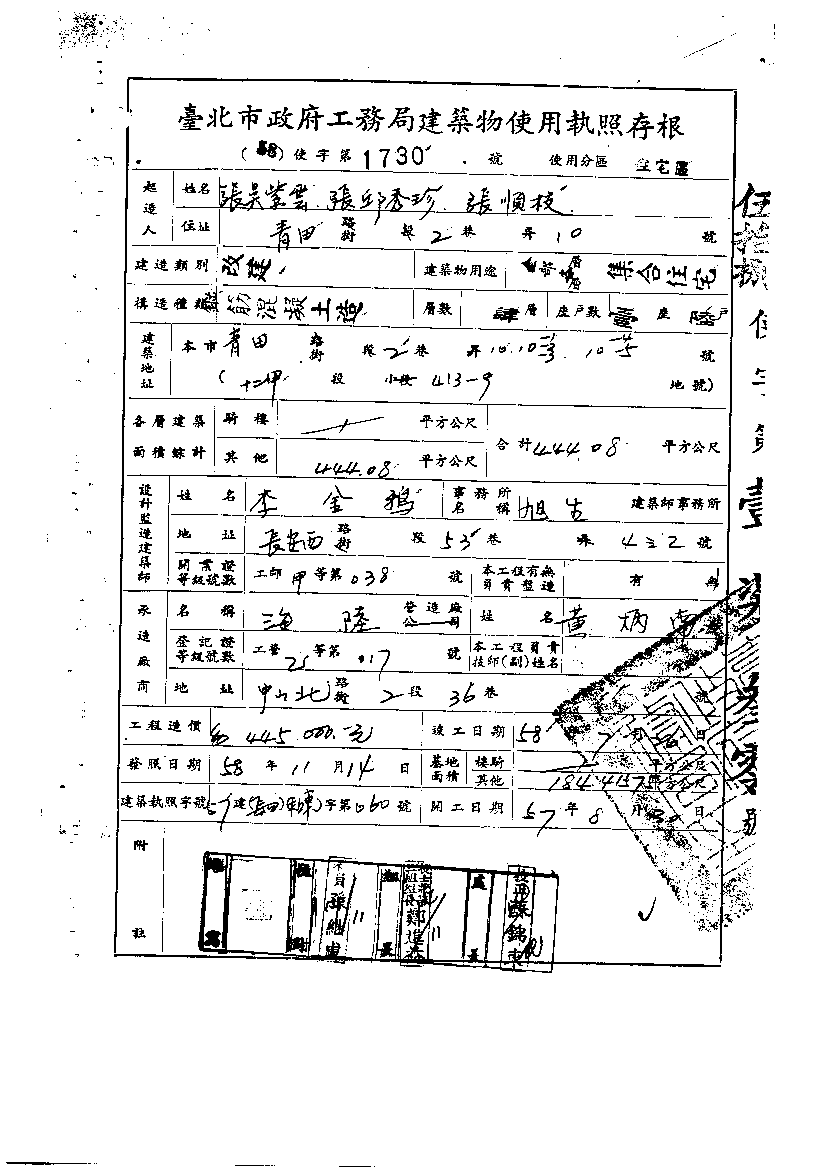 臺北市政府工務局建築物使用執照存根
(58)使字第1730號 使用分區 住宅區
起造人 姓名 張吳紫雲 張邱秀珍 張順枝
住址 青田 路街 段 2 巷 弄 10 號
建造類別 改建 建築物用途 集合住宅
構造種類 筋混凝土造 層數 肆層 座戶數 壹座 陸戶
建築地址 本市 青田 路街 段 2 巷 弄 號
( 十二甲 段 小段 413-9 地號)
各層建築面積綜計 騎樓 / 平方公尺 合計 444.08 平方公尺
其他 444.08 平方公尺
設計監造建築師 姓名 李金鴉 事務所名稱 旭生 建築師事務所
地址 長安西 路街 段 53 巷 弄 4三2 號
開業證等級號數 工師甲等第038號 本工程有無負責監造 有 無
承造廠商 名稱 海陸 營造廠公司 姓名 黃炳南
登記證等級號數 工營 等第017號 本工程負責技師(副)姓名
地址 中山北 路街 2 段 36 巷 號
工程造價 445,000.元 竣工日期 58年7月30日
發照日期 58年11月14日 基地面積 樓騎 平方公尺
其他 184.4157 平方公尺
建築執照字號 建 字第060號 開工日期 57年8月30日
附註
伍拾捌使字第壹柒參零號